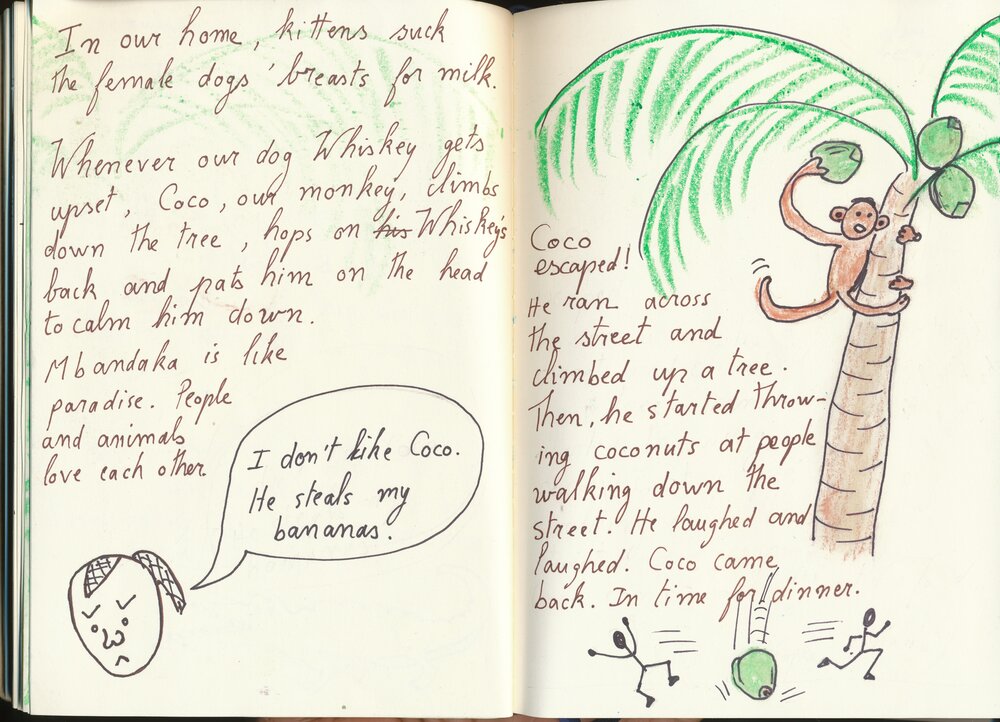 In our home, kittens suck
the female dogs' breasts for milk.
Whenever our dog Whiskey gets
upset, Coco, our monkey, climbs
down the tree, hops on his Whiskey's
back and pats him on the head
to calm him down.
Mbandaka is like
paradise. People
and animals
love each other.
I don't like Coco.
He steals my
bananas.
Coco
escaped!
He ran across
the street and
climbed up a tree.
Then, he started throw-
ing coconuts at people
walking down the
street. He laughed and
laughed. Coco came
back. In time for dinner.